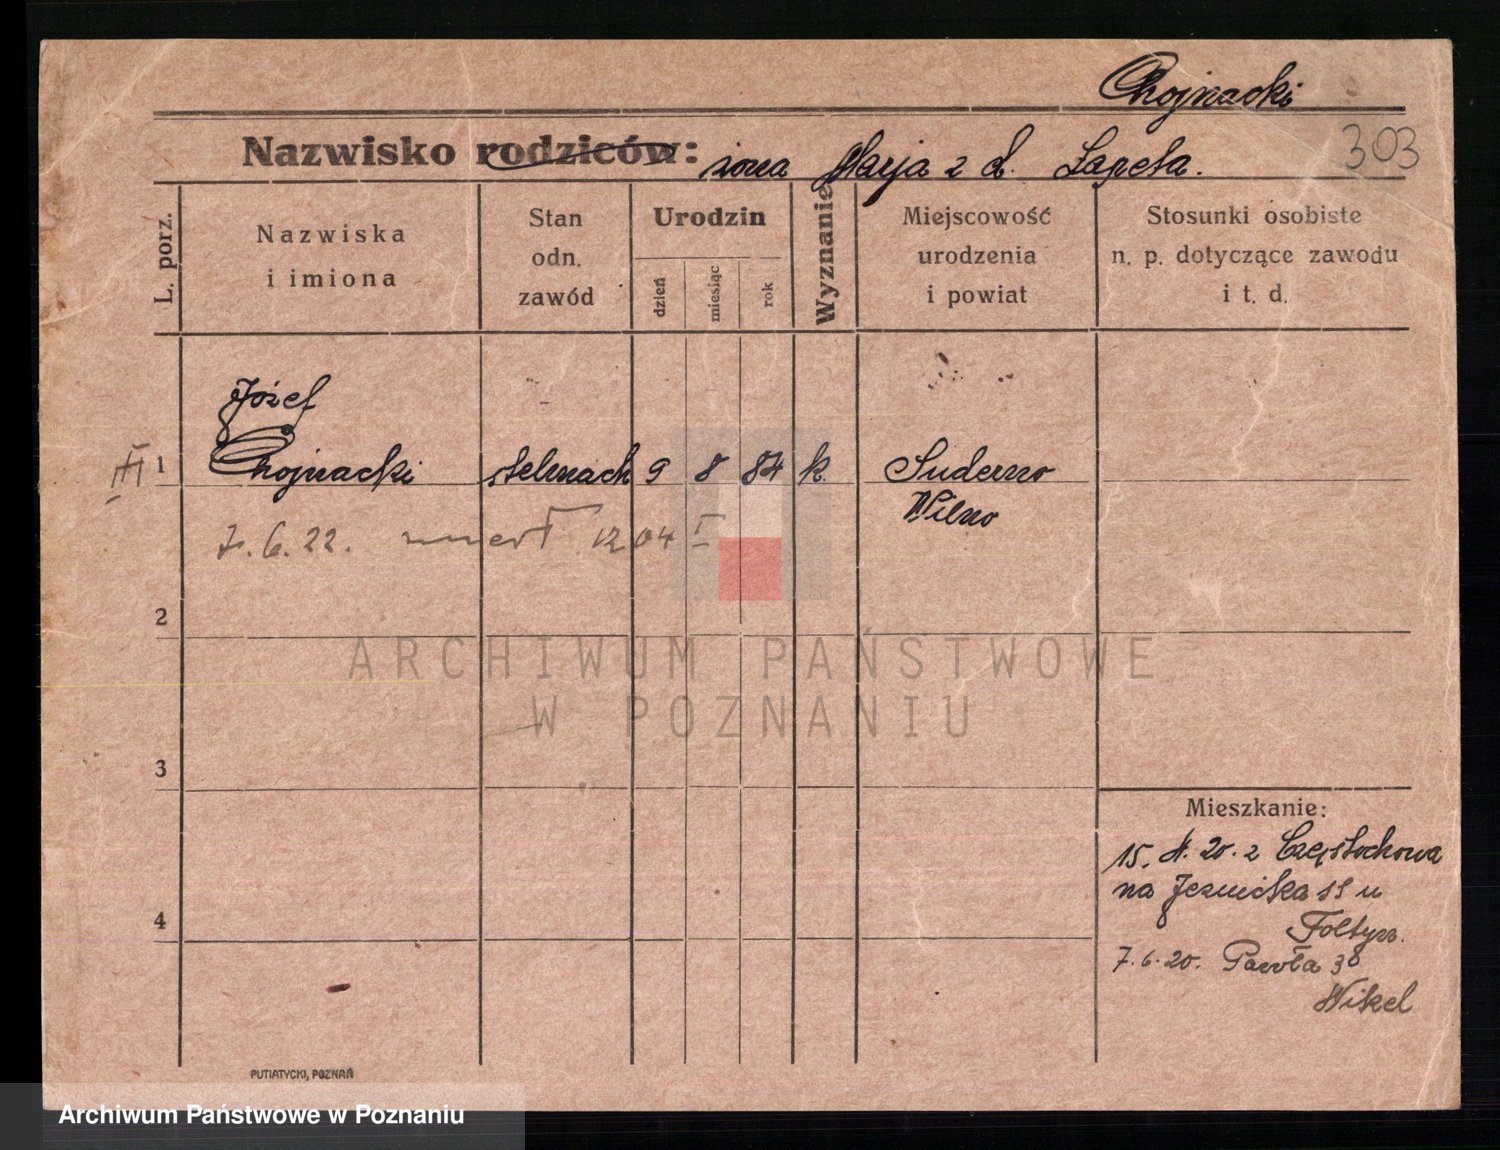 Chojnacki
303
Nazwisko rodziców: żona Marja z d. Lapeta.
L. porz.
Nazwiska
i imiona
Stan
odn.
zawód
Urodzin
dzień
miesiąc
rok
Wyznanie
Miejscowość
urodzenia
i powiat
Stosunki osobiste
n. p. dotyczące zawodu
i t. d.
Józef
III 1 Chojnacki stelmach 9 8 84 k. Suderwo
Wilno
7. 6. 22. umarł 1204 I
2
3
4
Mieszkanie:
15. 4. 20. z Częstochowa
na Jeżnicka 11 u
Foltyn.
7. 6. 20. Pawła 38
Nikel
PUTIATYCKI, POZNAŃ
ARCHIWUM PAŃSTWOWE
W POZNANIU
Archiwum Państwowe w Poznaniu